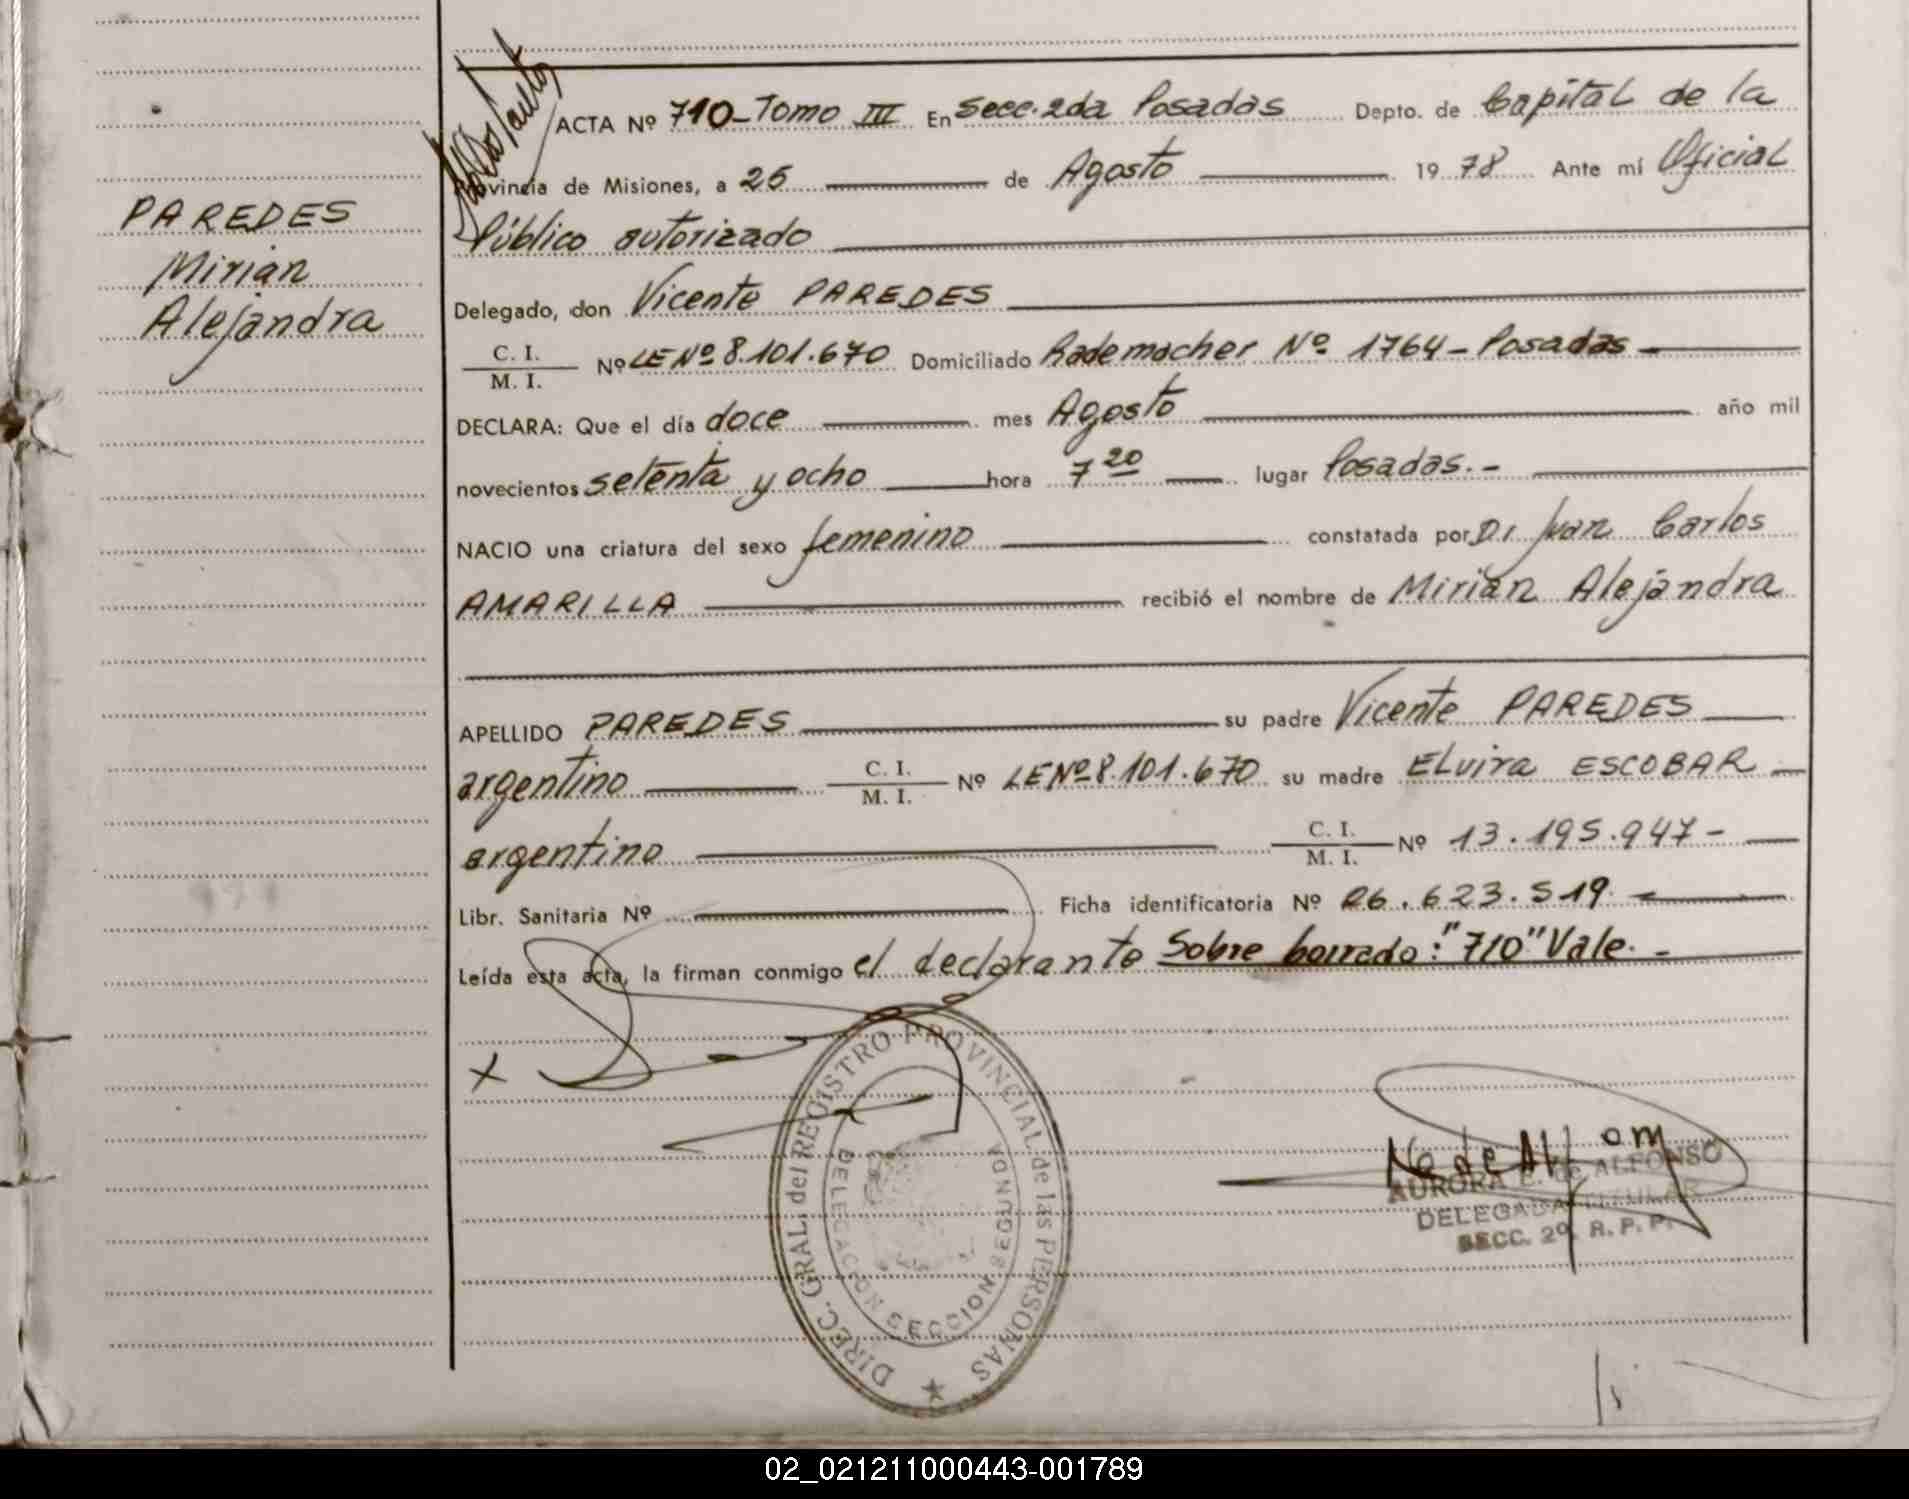 PAREDES
Mirian
Alejandra
ACTA Nº 710-Tomo III En Secc. 2da Posadas Depto. de Capital de la
Provincia de Misiones, a 25 de Agosto 1978 Ante mí Oficial
Público autorizado
Delegado, don Vicente PAREDES
C. I.
M. I. Nº LE Nº 8.101.670 Domiciliado Rademacher Nº 1764 - Posadas -
DECLARA: Que el día doce mes Agosto año mil
novecientos setenta y ocho hora 7 20 lugar Posadas. -
NACIO una criatura del sexo femenino constatada por Dr Juan Carlos
AMARILLA recibió el nombre de Mirian Alejandra
APELLIDO PAREDES su padre Vicente PAREDES
argentino C. I.
M. I. Nº LE Nº 8.101.670 su madre ELvira ESCOBAR
argentino C. I.
M. I. Nº 13.195.947 -
Libr. Sanitaria Nº Ficha identificatoria Nº 26.623.519. -
Leída esta acta, la firman conmigo el declarante Sobre borrado: "710" Vale. -
X
DIREC. GRAL. del REGISTRO PROVINCIAL de las PERSONAS
DELEGACION SECCION SEGUNDA
AURORA E. de ALFONSO
DELEGADA TITULAR
SECC. 2º. R. P. P.
02_021211000443-001789